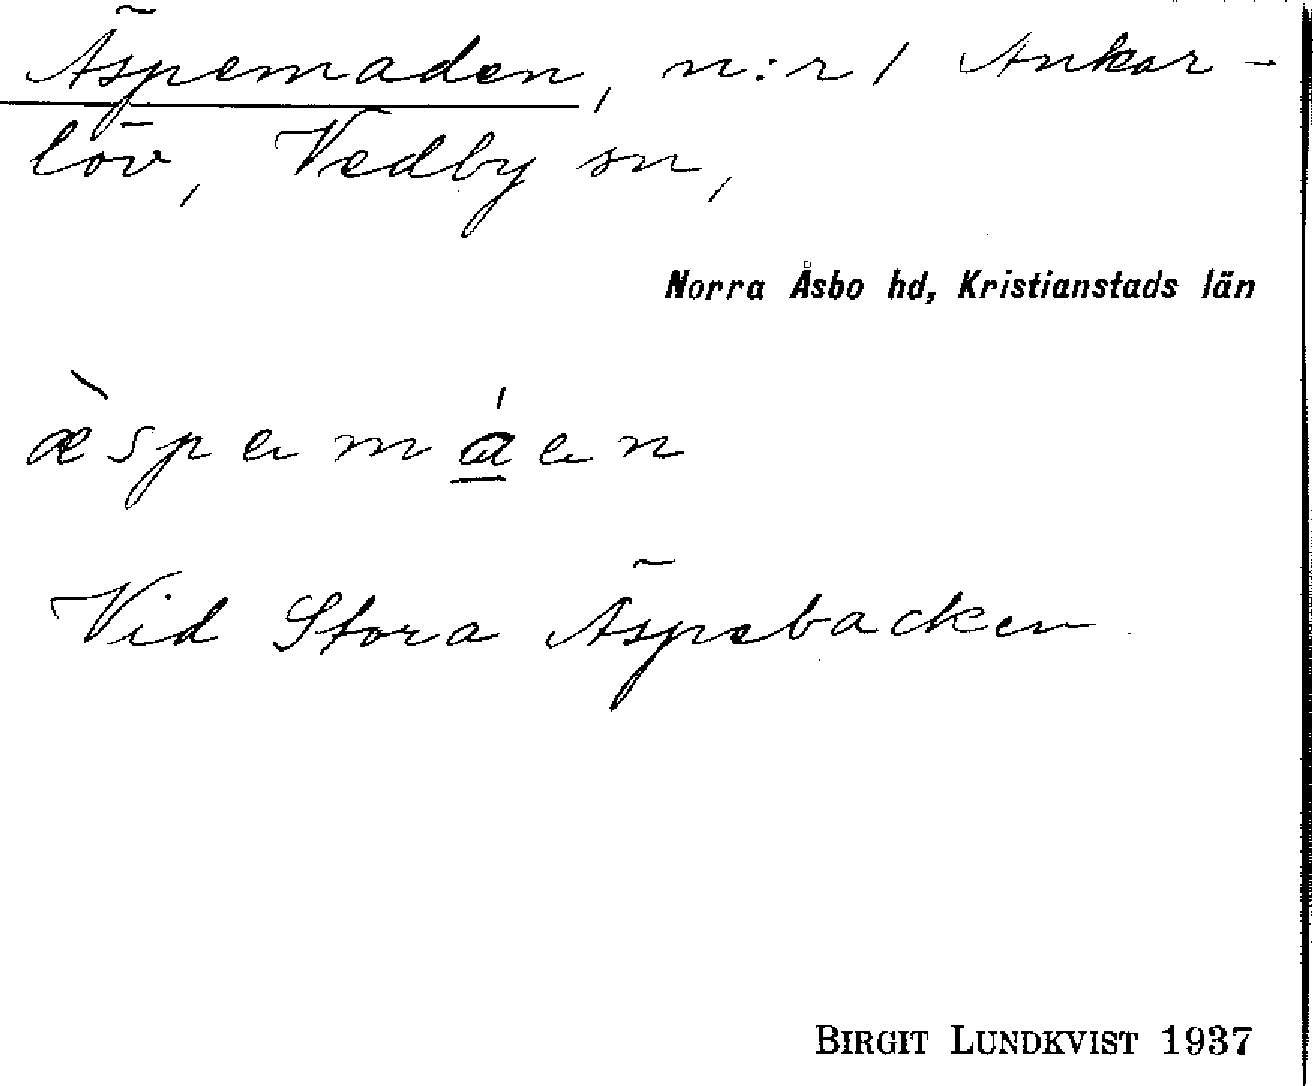 Äspemaden, n:r 1 Ankar-
löv, Vedby sn,
Norra Åsbo hd, Kristianstads län
æ̀spemáen
Vid Stora Äspebacken.
BIRGIT LUNDKVIST 1937